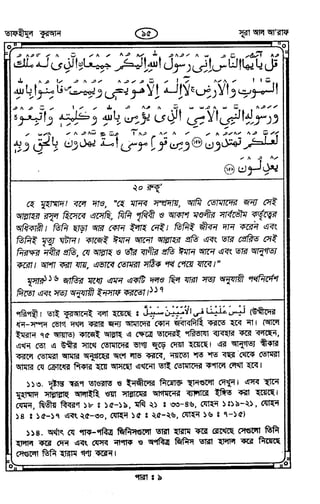 তাফহীমুল কুরআন
৯৫
সূরা আল আ'রাফ
قُلْ يٰٓاَيُّهَا النَّاسُ اِنِّىْ رَسُوْلُ اللّٰهِ اِلَيْكُمْ جَمِيْعَا ۨ الَّذِىْ لَهٗ مُلْكُ
السَّمٰوٰتِ وَالْاَرْضِ ۚ لَآ اِلٰهَ اِلَّا هُوَ يُحْىٖ وَيُمِيْتُ ۖ فَاٰمِنُوْا بِاللّٰهِ
وَرَسُوْلِهِ النَّبِىِّ الْاُمِّىِّ الَّذِىْ يُؤْمِنُ بِاللّٰهِ وَكَلِمٰتِهٖ وَاتَّبِعُوْهُ
لَعَلَّكُمْ تَهْتَدُوْنَ ﴿۱۵۸﴾ وَمِنْ قَوْمِ مُوْسٰٓى اُمَّةٌ يَّهْدُوْنَ بِالْحَقِّ وَبِهٖ
يَعْدِلُوْنَ ﴿۱۵۹﴾
২০ রুকূ'
হে মুহাম্মাদ! বলে দাও, "হে মানব সম্প্রদায়, আমি তোমাদের জন্য সেই
আল্লাহর রসূল হিসেবে এসেছি, যিনি পৃথিবী ও আকাশ মণ্ডলীর সার্বভৌম কর্তৃত্বের
অধিকারী। তিনি ছাড়া আর কোন ইলাহ নেই। তিনিই জীবন দান করেন এবং
তিনিই মৃত্যু ঘটান। কাজেই ঈমান আনো আল্লাহর প্রতি এবং তার প্রেরিত সেই
নিরক্ষর নবীর প্রতি, যে আল্লাহ ও তাঁর বাণীর প্রতি ঈমান আনে এবং তার আনুগত্য
করো। আশা করা যায়, এভাবে তোমরা সঠিক পথ পেয়ে যাবে।"
মূসার১১৬ জাতির মধ্যে এমন একটি দলও ছিল যারা সত্য অনুযায়ী পথনির্দেশ
দিতো এবং সত্য অনুযায়ী ইনসাফ করতো।১১৭
পরিপন্থী। তাই কুরআনেই বলা হয়েছে : لَيْسَ عَلَيْنَا فِى الْاُمِّيّٖنَ سَبِيْلٌ (উম্মীদের
ধন-সম্পদ ভোগ দখল করার জন্য আমাদের কোন জবাবদিহি করতে হবে না। (আলে
ইমরান ৭৫ আয়াত) কাজেই আল্লাহ এ ক্ষেত্রে তাদেরই পরিভাষা ব্যবহার করে বলছেন,
এখন তো এ উম্মীর সাথে তোমাদের ভাগ্য জুড়ে দেয়া হয়েছে। এর আনুগত্য স্বীকার
করলে তোমরা আমার অনুগ্রহের অংশ লাভ করবে, নয়তো শত শত বছর থেকে তোমরা
আমার যে ক্রোধের শিকার হয়ে আসছো এখনো তাই তোমাদের কপালে লেখা হবে।
১১৩. দৃষ্টান্ত স্বরূপ তাওরাত ও ইনজীলের নিম্নোক্ত স্থানগুলো দেখুন। এসব স্থানে
মুহাম্মাদ সাল্লাল্লাহু আলাইহি ওয়া সাল্লামের আগমনের ব্যাপারে ইঙ্গিত করা হয়েছে।
যেমন, দ্বিতীয় বিবরণ ১৮ : ১৫-১৯, মথি ২১ : ৩৩-৪৬, যোহন ১:১৯-২১, যোহন
১৪ : ১৫-১৭ এবং ২৫-৩০, যোহন ১৫ : ২৫-২৬, যোহন ১৬ : ৭-১৫)
১১৪. অর্থাৎ যে পাক-পবিত্র জিনিসগুলো তারা হারাম করে রেখেছে সেগুলো তিনি
হালাল করে দেন এবং যেসব নাপাক ও অপবিত্র জিনিস তারা হালাল করে নিয়েছে
সেগুলো তিনি হারাম গণ্য করেন।
পারা : ৯